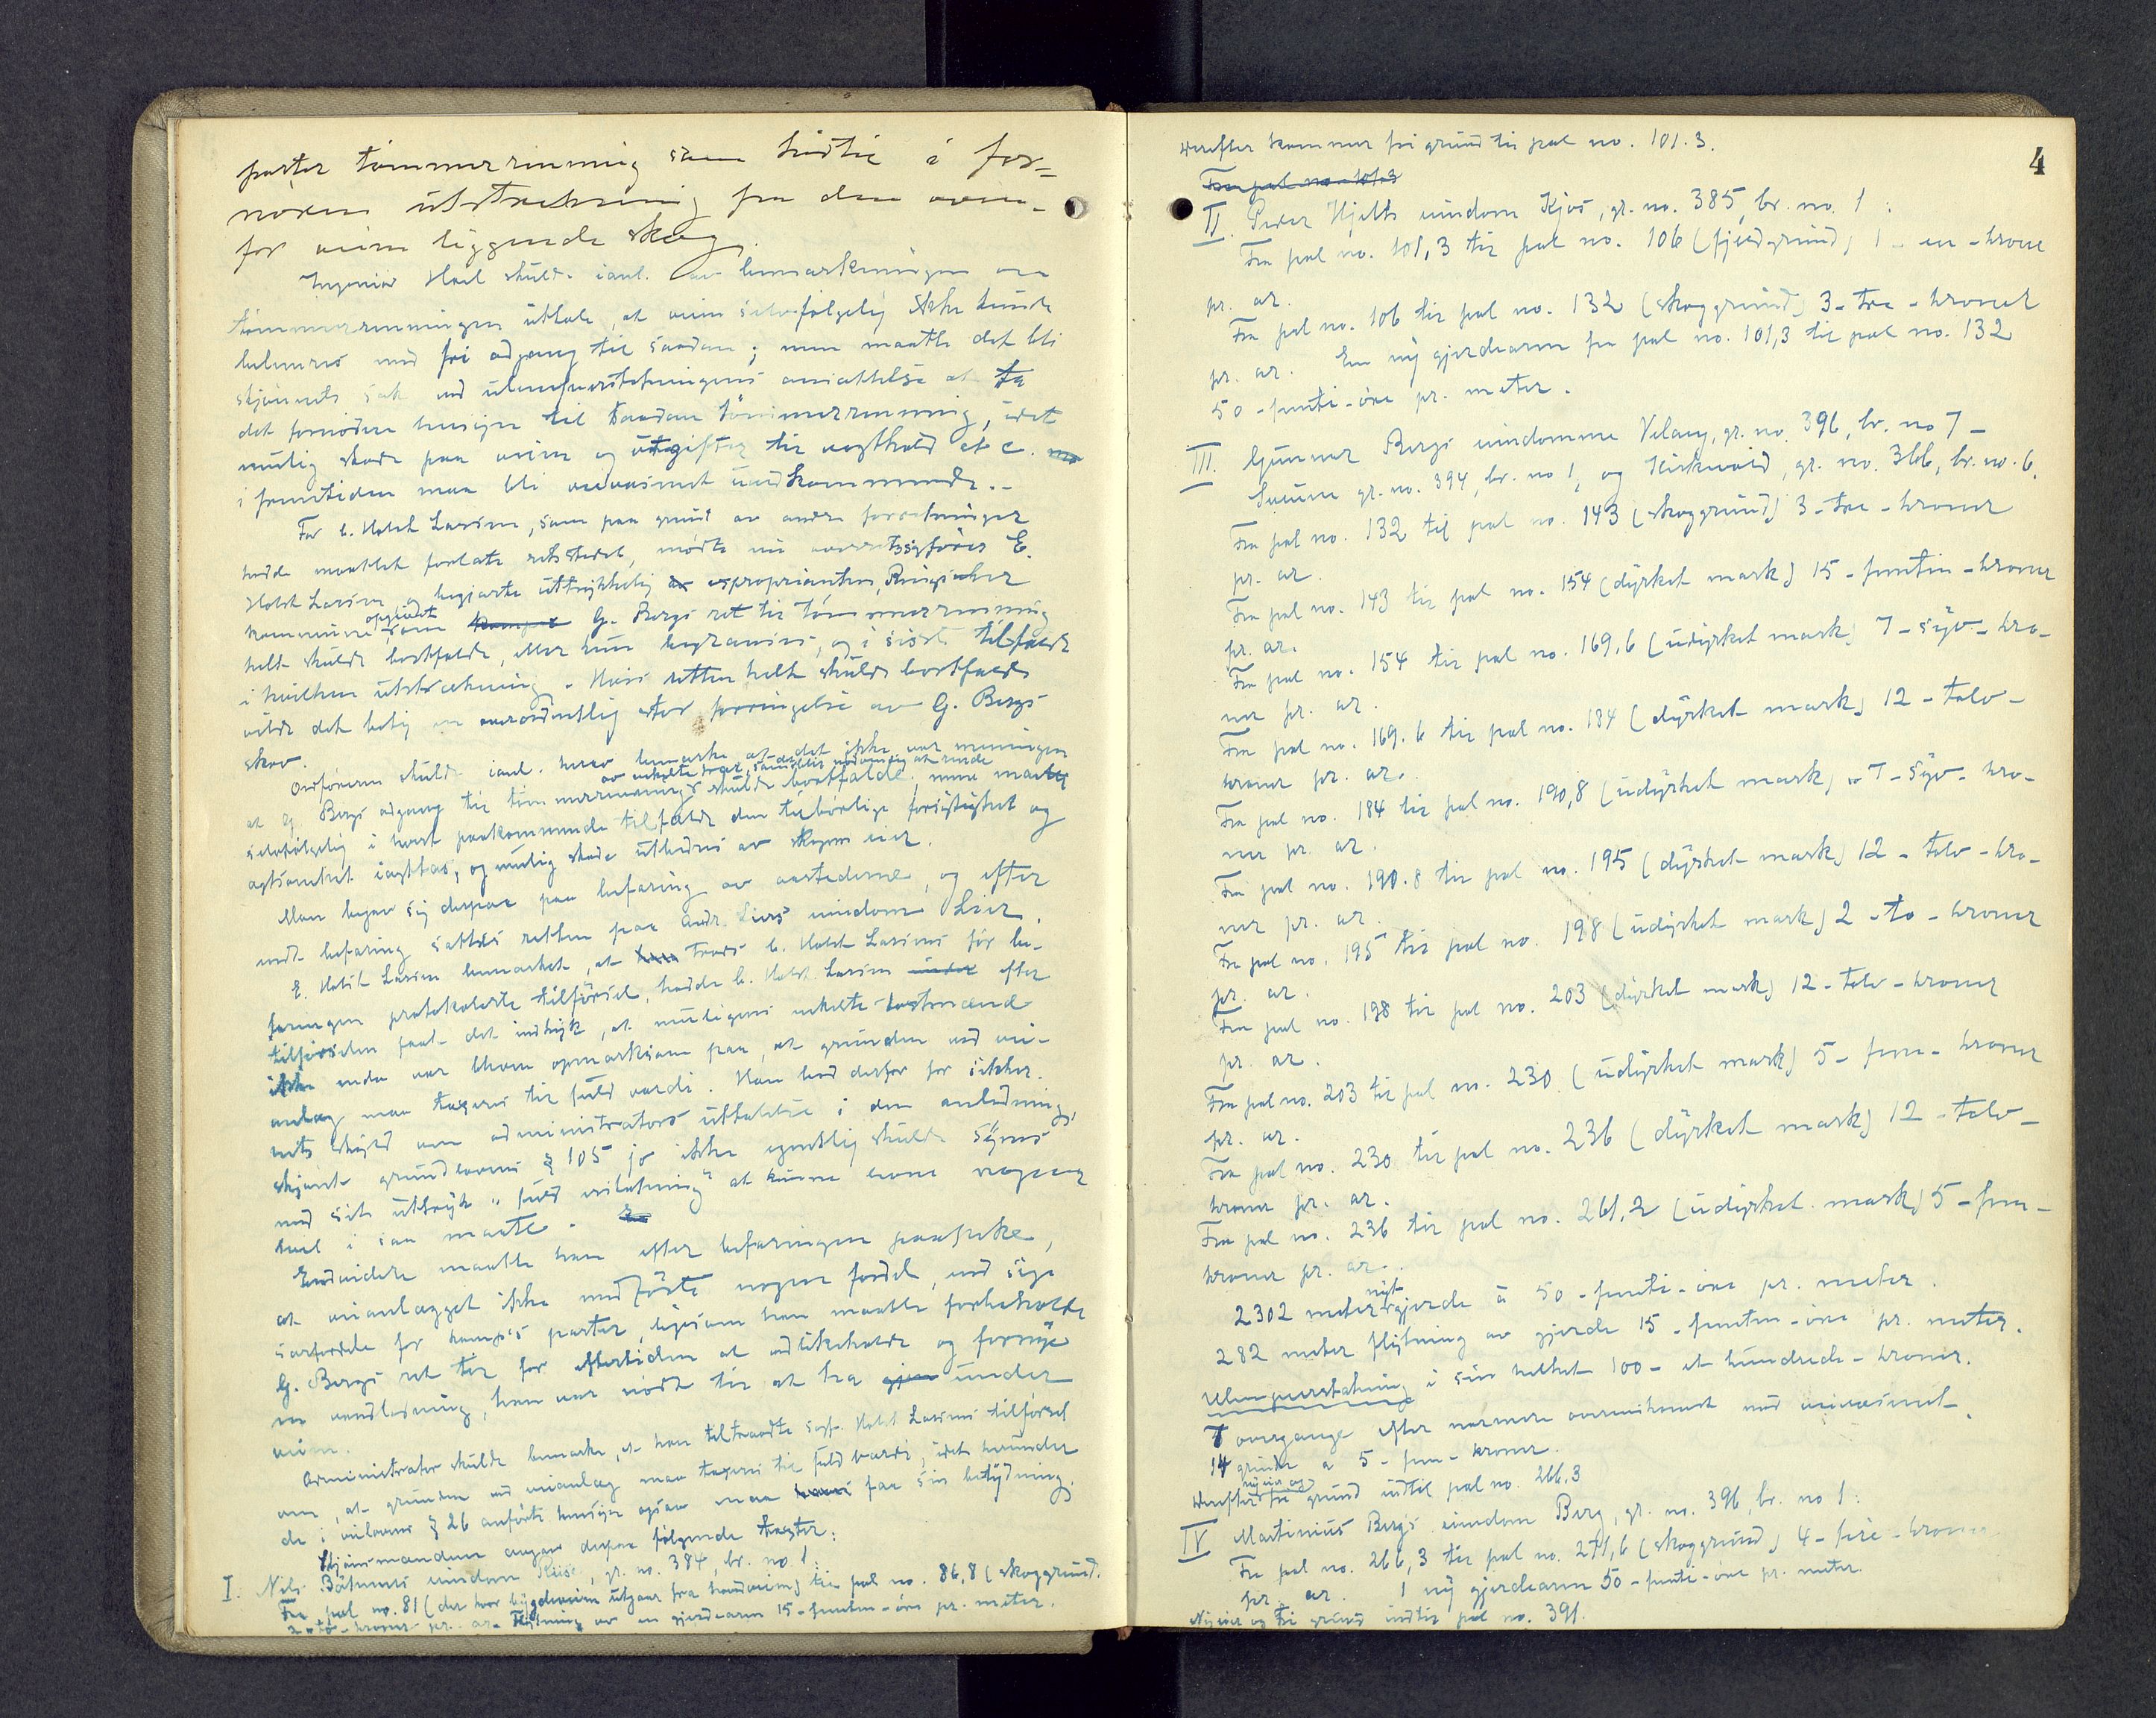 parter tömmerrenning som hidtil i for-
nøden utstrekning fra den oven-
for veien liggende skog.
Ingeniør Hoel skulde i anl. av bemerkningen om
tømmerrenningen uttale, at veien selvfølgelig ikke kunde
belemres med fri adgang til saadan; men maatte det bli
skjønnets sak ved ulempeerstatningens ansættelse at ta
det fornødne hensyn til saadan tømmerrenning, idet
mulig skade paa veien og utgifter til vagthold etc.
i fremtiden maa bli veivæsenet uvedkommende.-
For C. Holst Larsen, som paa grund av andre forretninger
hadde maattet forlate retsstedet, mødte nu overretssagfører E.
Holst Larsen, og begjærte uttrykkelig av expropriantens, Ringsaker
kommune opgivet, om G. Bergs ret til tømmerrenning
helt skulde bortfalde, eller kun begrænses, og i sidste tilfælde
i hvilken utstrækning. Hvis retten helt skulde bortfalde
vilde det bety en overordentlig stor forringelse av G. Bergs
skov.
Ordføreren skulde i anl. herav bemerke at det ikke var meningen
at G. Bergs adgang til tømmerrenning av enkelte trær, skulde bortfalde, men maatte
selvfølgelig i hvert paakommende tilfælde den tilbørlige forsigtighet og
agtsomhet iagttas, og mulig skade utbedres av skogens eier.
Man begav sig derpaa paa befaring av aastederne, og efter
endt befaring sattes retten paa Andr. Liers eiendom Lier.
E. Holst Larsen bemerket, at trods C. Holst Larsens før be-
faringen protokolerte tilførsel, hadde C. Holst Larsen efter
tilførselen faat det indtryk, at muligens enkelte lagtmænd
ikke endda var blevne opmerksom paa, at grunden ved vei-
anlæg maa taxeres til fuld værdi. Han bad derfor for sikker-
hets skyld om administrators uttalelse i den anledning,
skjønt grundlovens § 105 jo ikke egentlig skulde synes
med sit uttryk "fuld erstatning" at kunne levne nogen
tvil i saa maate.
Endvidere maatte han efter befaringen paastke,
at veianlægget ikke medførte nogen fordel, end sige
særfordele for hans parter, ligesom han maatte forbeholde
G. Bergs ret til for eftertiden at vedlikeholde og fornye
en vandledning, han var nødt til at ha under
veien.
Administrator skulde bemerke, at han tiltraadte sagf. Holst Larsens tilførsel
om, at grunden ved veianlæg maa taxeres til fuld værdi, idet herunder
de i veilovens § 26 anførte hensyn ogsaa maa faa sin betydning.
Skjønsmændene avgav derpaa følgende takster:
I. Nils Bøhmers eiendom Kise, gr. no. 384, br. no. 1:
Fra pæl no. 81 (der hvor bygdeveien utgaar fra hovedveien) til pæl no. 86,8 (skoggrund)
2 - to - kroner pr. ar. Flytning av en gjerdearm 15 - femten - øre pr. meter.
4
Derefter kommer fri grund til pæl no. 101.3.
Fra pæl no. 101.3
II. Peder Hjelts eiendom Kjos, gr. no. 385, br. no. 1:
Fra pæl no. 101,3 til pæl no. 106 (fjeldgrund) 1 - en - krone
pr. ar.
Fra pæl no. 106 til pæl no. 132 (skoggrund) 3 - tre - kroner
pr. ar. En ny gjerdearm fra pæl no. 101,3 til pæl no. 132
50 - femti - øre pr. meter.
III. Gunner Bergs eiendomme Velang, gr. no. 396, br. no 7 -
gr. no. 394, br. no 1, og Kirkevold, gr. no. 366, br. no. 6.
Fra pæl no. 132 til pæl no. 143 (skoggrund) 3 - tre - kroner
pr. ar.
Fra pæl no. 143 til pæl no. 154 (dyrket mark) 15 - femten - kroner
pr. ar.
Fra pæl no. 154 til pæl no. 169,6 (udyrket mark) 7 - syv - kro-
ner pr. ar.
Fra pæl no. 169.6 til pæl no. 184 (dyrket mark) 12 - tolv -
kroner pr. ar.
Fra pæl no. 184 til pæl no. 190,8 (udyrket mark) 7 - syv - kro-
ner pr. ar.
Fra pæl no. 190.8 til pæl no. 195 (dyrket mark) 12 - tolv - kro-
ner pr. ar.
Fra pæl no. 195 til pæl no. 198 (udyrket mark) 2 - to - kroner
pr. ar.
Fra pæl no. 198 til pæl no. 203 (dyrket mark) 12 - tolv - kroner
pr. ar.
Fra pæl no. 203 til pæl no. 230 (udyrket mark) 5 - fem - kroner
pr. ar.
Fra pæl no. 230 til pæl no. 236 (dyrket mark) 12 - tolv -
kroner pr. ar.
Fra pæl no. 236 til pæl no. 261,2 (udyrket mark) 5 - fem -
kroner pr. ar.
2302 meter nyt gjerde à 50 - femti - øre pr. meter.
282 meter flytning av gjerde 15 - femten - øre pr. meter.
Ulempeerstatning i sin helhet 100 - et hundrede - kroner.
7 overgange efter nærmere overenskomst med veivæsenet.
14 grinder à 5 - fem - kroner.
Derefter ny eier og fri grund indtil pæl no. 266.3
IV Martinius Bergs eiendom Berg, gr. no. 396, br. no 1:
Fra pæl no. 266,3 til pæl no. 271,6 (skoggrund) 4 - fire - kroner
pr. ar. 1 ny gjerdearm 50 - femti - øre pr. meter.
Ny eier og fri grund indtil pæl no. 391.